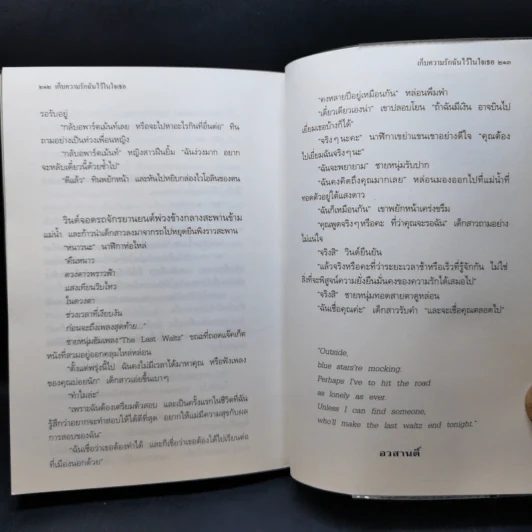 ๒๑๒ เก็บความรักฉันไว้ในใจเธอ
รอรับอยู่
"กลับอพาร์ตเม้นท์เลย หรือจะไปหาอะไรกินที่อื่นต่อ" ทิน
ถามอย่างเป็นห่วงเพื่อนหญิง
"กลับอพาร์ตเม้นท์" หญิงสาวฝืนยิ้ม "ฉันง่วงมาก อยาก
จะหลับเดี๋ยวนี้ด้วยซ้ำไป"
"ดีแล้ว" ทินพยักหน้า และหันไปหยิบกล่องไวโอลินของตน
วินด์จอดรถจักรยานยนต์พ่วงข้างกลางสะพานข้าม
แม่น้ำ และก้าวนำเด็กสาวลงมาจากรถไปหยุดยืนพิงราวสะพาน
"หนาวนะ" นาฟิกาห่อไหล่
"คืนหนาว
ดวงดาวพราวฟ้า
แสงเทียนวับไหว
ในดวงตา
ช่วงเวลาที่เงียบงัน
ก่อนจะถึงเพลงสุดท้าย..."
ชายหนุ่มฮัมเพลง "The Last Waltz" ขณะที่ถอดแจ็คเก็ต
หนังที่สวมอยู่ออกคลุมไหล่หล่อน
"ตั้งแต่พรุ่งนี้ไป ฉันคงไม่มีเวลาได้มาหาคุณ หรือฟังเพลง
ของคุณบ่อยนัก" เด็กสาวเอ่ยขึ้นเบาๆ
"ทำไมล่ะ"
"เพราะฉันต้องเตรียมตัวสอบ และเป็นครั้งแรกในชีวิตที่ฉัน
รู้สึกว่าอยากจะทำสอบให้ได้ดีที่สุด อยากให้แม่มีความสุขกับผล
การสอบของฉัน"
"ฉันเชื่อว่าเธอต้องทำได้ และก็เชื่อว่าเธอต้องได้ไปเรียนต่อ
ที่เมืองนอกด้วย"
เก็บความรักฉันไว้ในใจเธอ ๒๑๓
"คงหลายปีอยู่เหมือนกัน" หล่อนพึมพำ
"เดี๋ยวเดียวเองน่า" เขาปลอบโยน "ถ้าฉันมีเงิน อาจบินไป
เยี่ยมเธอบ้างก็ได้"
"จริงๆ นะคะ" นาฟิกาเขย่าแขนเขาอย่างดีใจ "คุณต้อง
ไปเยี่ยมฉันจริงๆ นะ"
"ฉันจะพยายาม" ชายหนุ่มรับปาก
"ฉันคงคิดถึงคุณมากเลย" หล่อนมองออกไปที่แม่น้ำที่
ทอดตัวอยู่ใต้แสงดาว
"ฉันก็เหมือนกัน" เขาพยักหน้าเคร่งขรึม
"คุณพูดจริงๆ หรือคะ ที่ว่าคุณจะรอฉัน" เด็กสาวถามอย่าง
ไม่แน่ใจ
"จริงสิ" วินด์ยืนยัน
"แล้วจริงหรือคะที่ว่าระยะเวลาช้าหรือเร็วที่รู้จักกัน ไม่ใช่
สิ่งที่จะพิสูจน์ความยั่งยืนมั่นคงของความรักได้เสมอไป"
"จริงสิ" ชายหนุ่มทอดสายตาดูหล่อน
"ฉันเชื่อคุณค่ะ" เด็กสาวรับคำ "และจะเชื่อคุณตลอดไป"
"Outside,
blue stars're mocking.
Perhaps I've to hit the road
as lonely as ever.
Unless I can find someone,
who'll make the last waltz end tonight."
อวสานต์